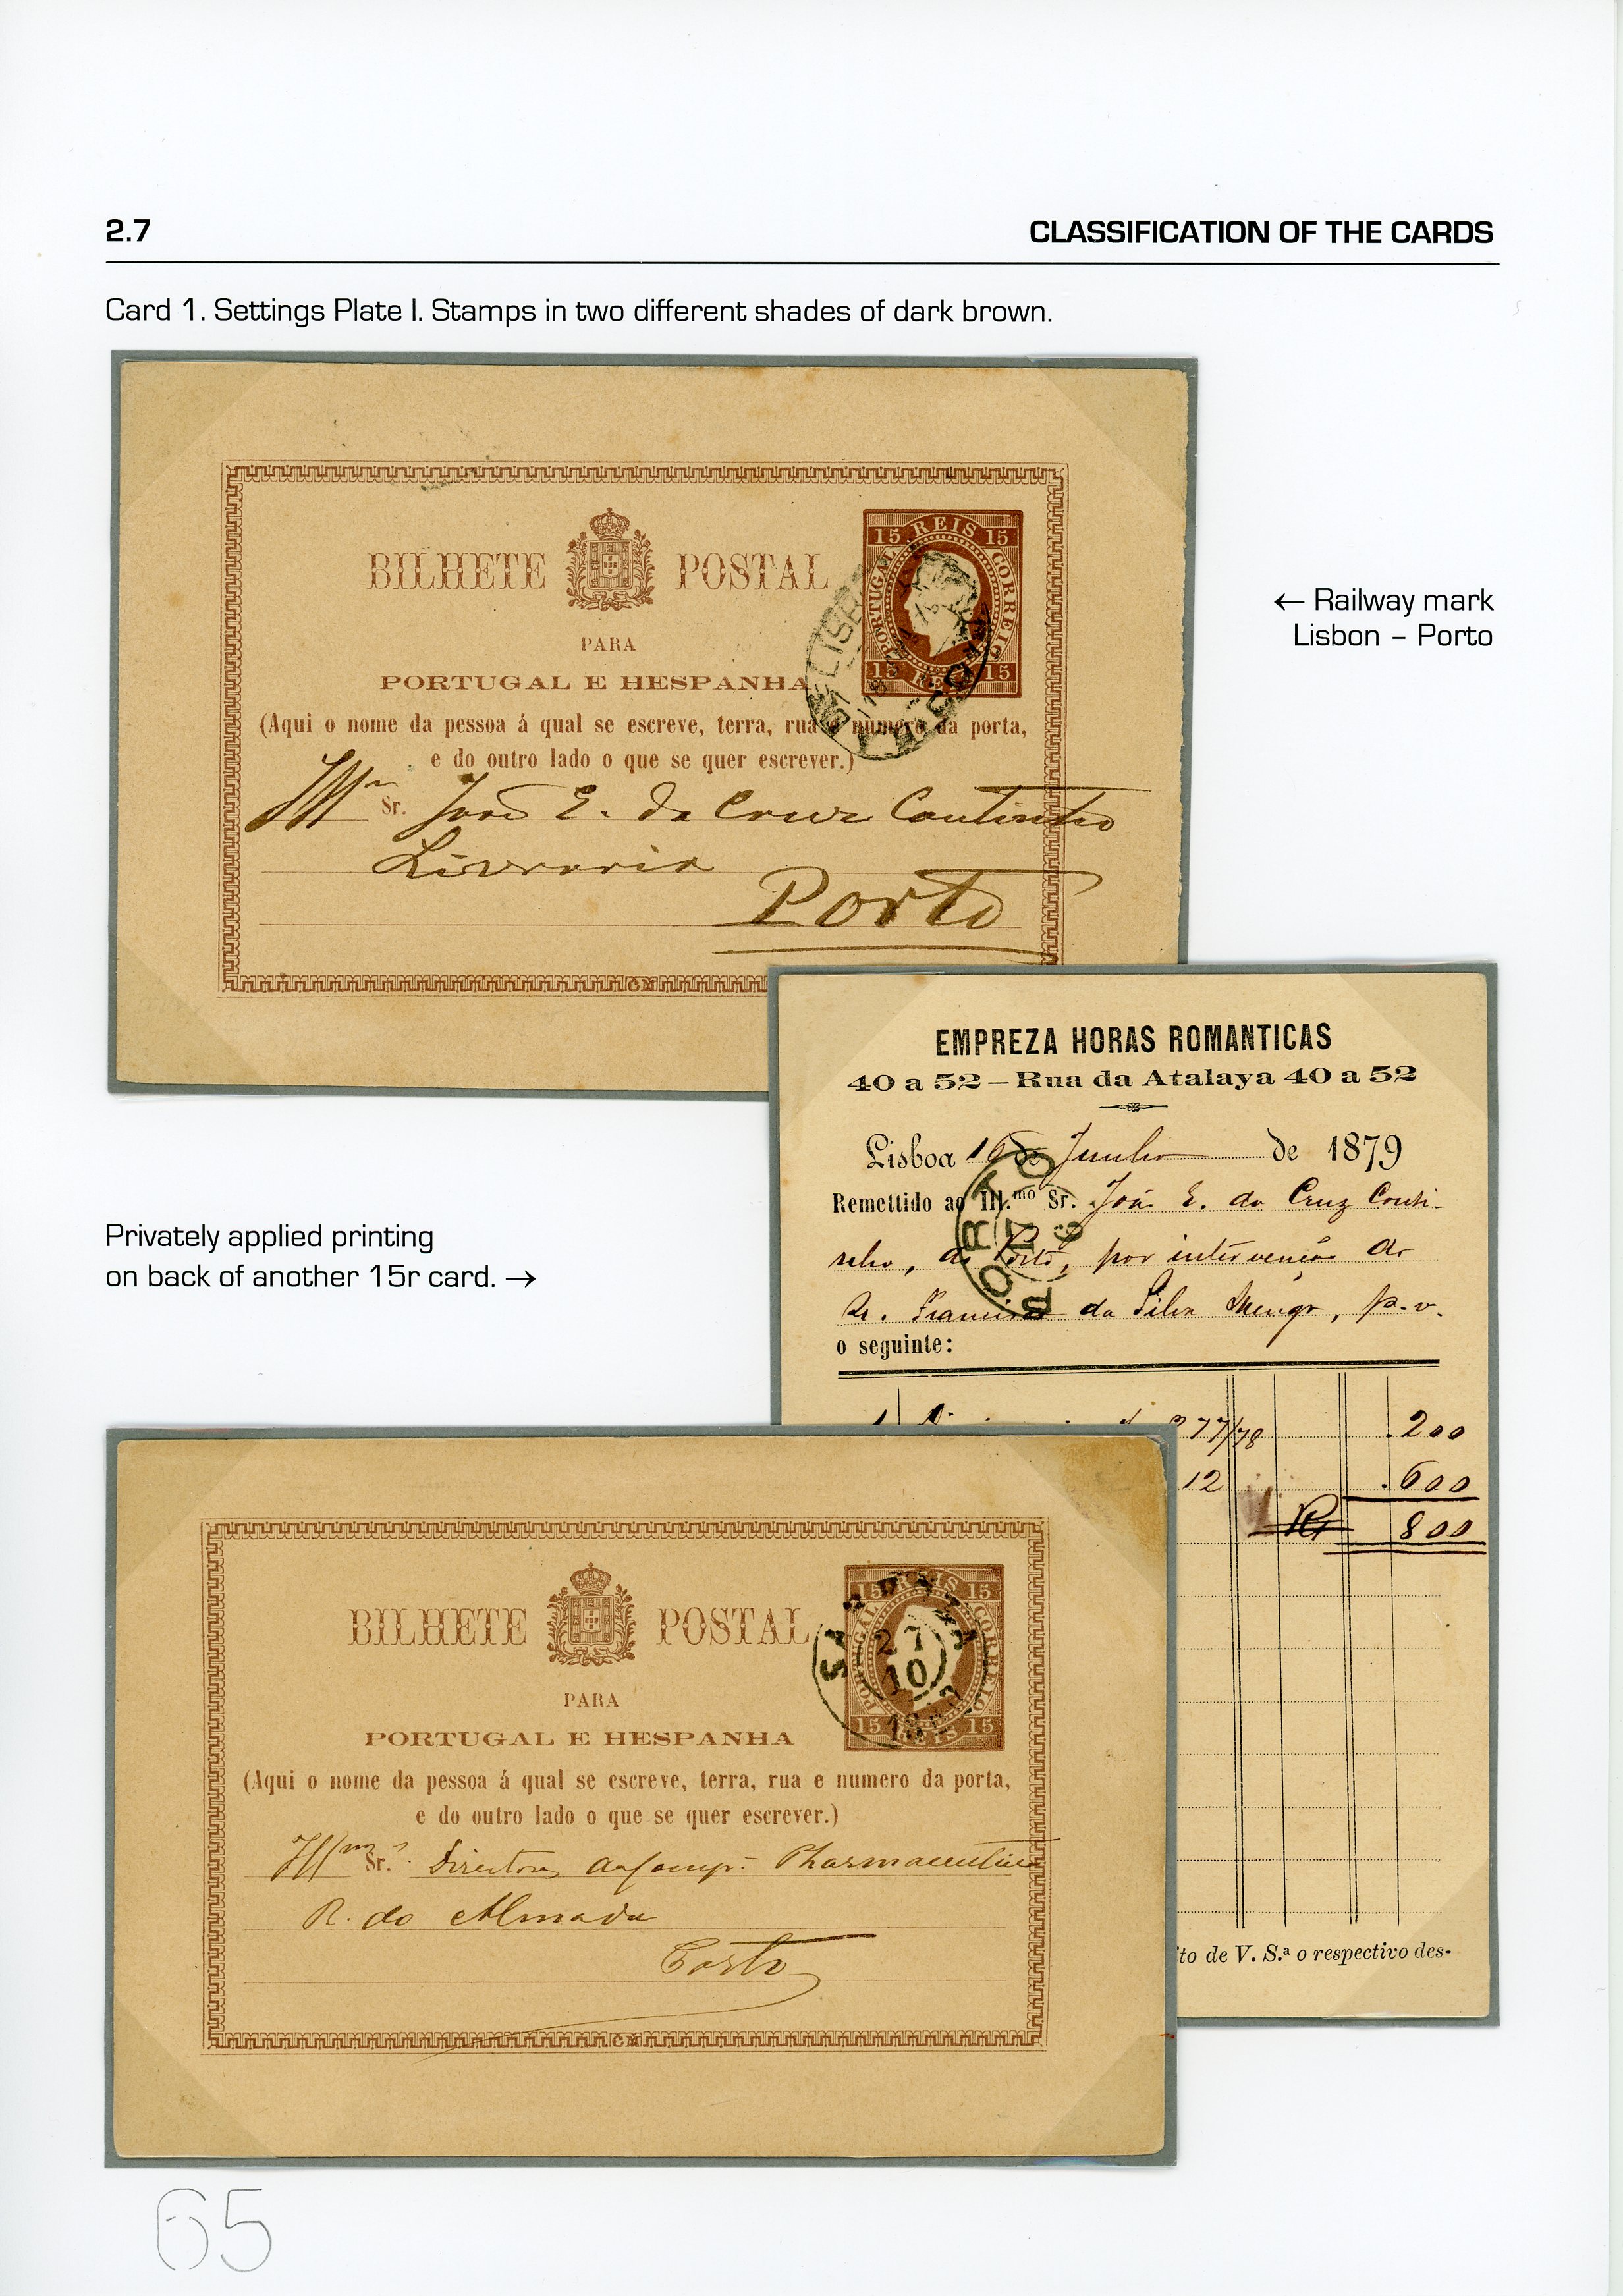 2.7
CLASSIFICATION OF THE CARDS
Card 1. Settings Plate I. Stamps in two different shades of dark brown.
BILHETE POSTAL
15 REIS 15
PORTUGAL CORREIO
15 REIS 15
PARA
PORTUGAL E HESPANHA
(Aqui o nome da pessoa á qual se escreve, terra, rua e numero da porta,
e do outro lado o que se quer escrever.)
Sr. João E. da Cruz Coutinho
Livraria
Porto
CM
← Railway mark
Lisbon – Porto
EMPREZA HORAS ROMANTICAS
40 a 52 – Rua da Atalaya 40 a 52
Lisboa 16 de Junho de 1879
Remettido ao Ill.mo Sr. João E. da Cruz Couti-
nho, do Porto, por intervenção do
Sr. Francisco da Silva Mengo, p. v.
o seguinte:
PORTO
17
6
77/78 200
12 600
800
to de V. S.ª o respectivo des-
Privately applied printing
on back of another 15r card. →
BILHETE POSTAL
15 REIS 15
PORTUGAL CORREIO
15 REIS 15
27
10
PARA
PORTUGAL E HESPANHA
(Aqui o nome da pessoa á qual se escreve, terra, rua e numero da porta,
e do outro lado o que se quer escrever.)
Sr. Directores da Comp. Pharmaceutica
R. do Almada
Porto
CM
65